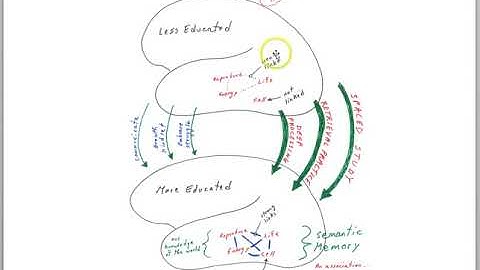 Less Educated
weak
links
Reproduce
Life
Energy
Cell
not
linked
communicate
Growth
mindset
Enhance
strengths
DEEP
PROCESSING
RETRIEVAL PRACTICE
SPACED STUDY
More Educated
strong
links
Reproduce
Life
Energy
Cell
our
knowledge
of the world
Semantic
Memory
An association...